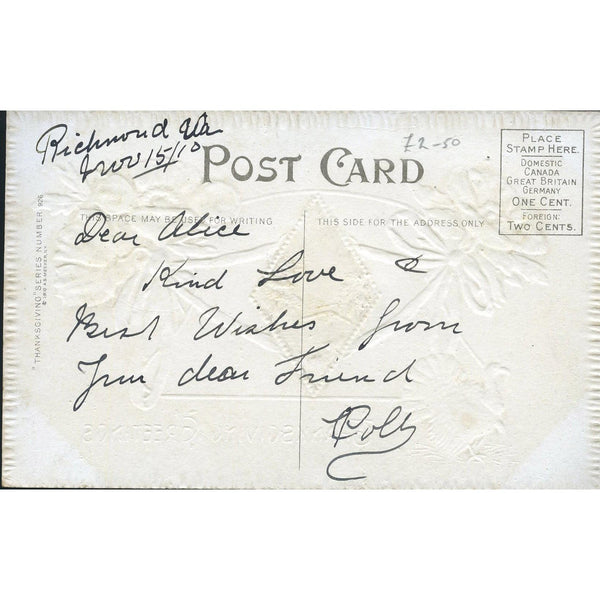 Richmond Va
Nov 15/10
£2-50
POST CARD
PLACE
STAMP HERE.
DOMESTIC
CANADA
GREAT BRITAIN
GERMANY
ONE CENT.
FOREIGN:
TWO CENTS.
THIS SPACE MAY BE USED FOR WRITING
THIS SIDE FOR THE ADDRESS ONLY
"THANKSGIVING" SERIES NUMBER 926
Dear Alice
Kind Love &
Best Wishes from
Your dear Friend
GREETINGS